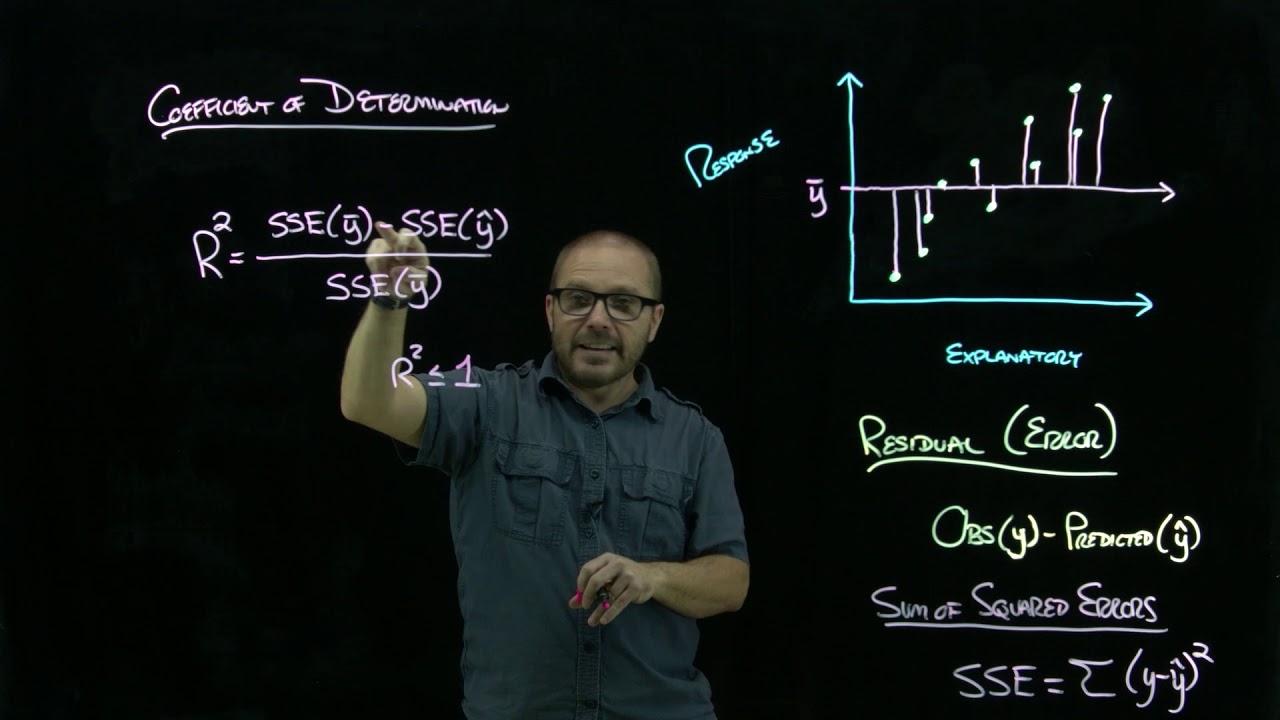 COEFFICIENT OF DETERMINATION
R² = SSE(ȳ) - SSE(ŷ) / SSE(ȳ)
R² ≤ 1
RESPONSE
ȳ
EXPLANATORY
RESIDUAL (ERROR)
OBS(y) - PREDICTED(ŷ)
SUM OF SQUARED ERRORS
SSE = Σ(y-ŷ)²